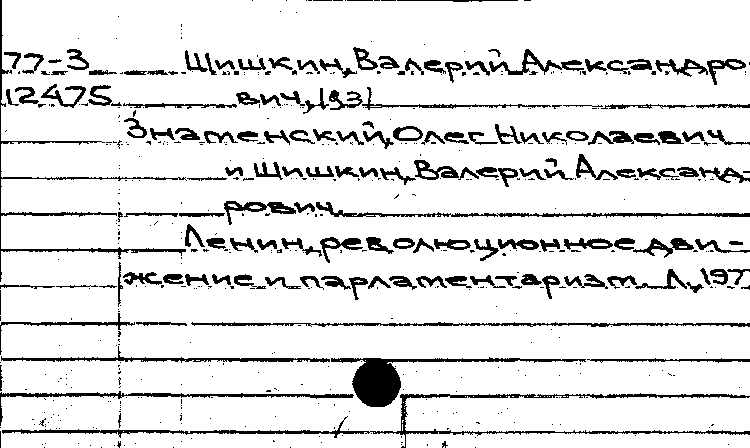 77-3 Шишкин, Валерий Александро-
12475 вич, 
Знаменский, Олег Николаевич
и Шишкин, Валерий Александ-
рович.
Ленин, революционное дви-
жение и парламентаризм. Л., 197